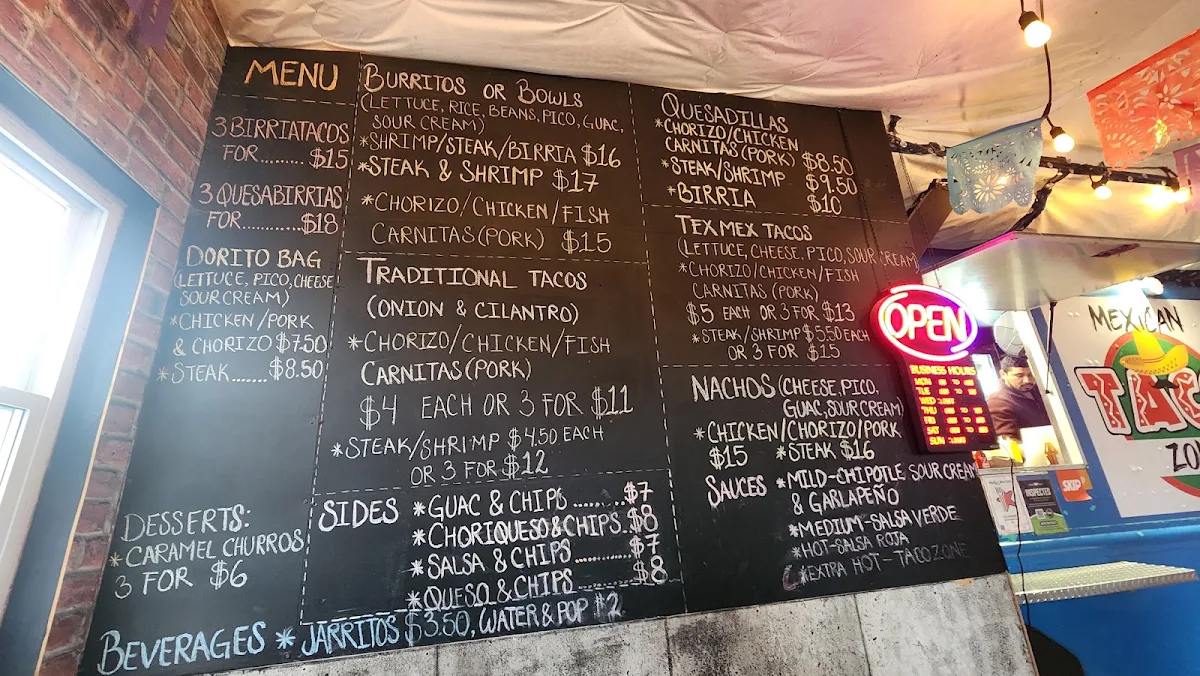 MENU
3 BIRRIATACOS
FOR......... $15
3 QUESABIRRIAS
FOR............$18
DORITO BAG
(LETTUCE, PICO, CHEESE
SOUR CREAM)
*CHICKEN/PORK
& CHORIZO $7.50
*STEAK......$8.50
DESSERTS:
*CARAMEL CHURROS
3 FOR $6
BURRITOS OR BOWLS
(LETTUCE, RICE, BEANS, PICO, GUAC,
SOUR CREAM)
*SHRIMP/STEAK/BIRRIA $16
*STEAK & SHRIMP $17
*CHORIZO/CHICKEN/FISH
CARNITAS (PORK) $15
TRADITIONAL TACOS
(ONION & CILANTRO)
*CHORIZO/CHICKEN/FISH
CARNITAS (PORK)
$4 EACH OR 3 FOR $11
*STEAK/SHRIMP $4.50 EACH
OR 3 FOR $12
SIDES
*GUAC & CHIPS ....... $7
*CHORIQUESO & CHIPS. $8
*SALSA & CHIPS ........... $7
*QUESO & CHIPS ........ $8
BEVERAGES * JARRITOS $3.50, WATER & POP $2
QUESADILLAS
*CHORIZO/CHICKEN
CARNITAS (PORK) $8.50
*STEAK/SHRIMP $9.50
*BIRRIA $10
TEX MEX TACOS
(LETTUCE, CHEESE, PICO, SOUR CREAM
*CHORIZO/CHICKEN/FISH
CARNITAS (PORK)
$5 EACH OR 3 FOR $13
*STEAK/SHRIMP $5.50 EACH
OR 3 FOR $15
NACHOS (CHEESE, PICO,
GUAC, SOUR CREAM)
*CHICKEN/CHORIZO/PORK
$15 *STEAK $16
SAUCES *MILD-CHIPOTLE SOUR CREAM
& GARLAPEÑO
*MEDIUM-SALSA VERDE
*HOT-SALSA ROJA
*EXTRA HOT-TACOZONE
OPEN
BUSINESS HOURS
MON
TUE
WED
THU
FRI
SAT
SUN
MEXICAN
TAC
ZO
INSPECTED
SKIP